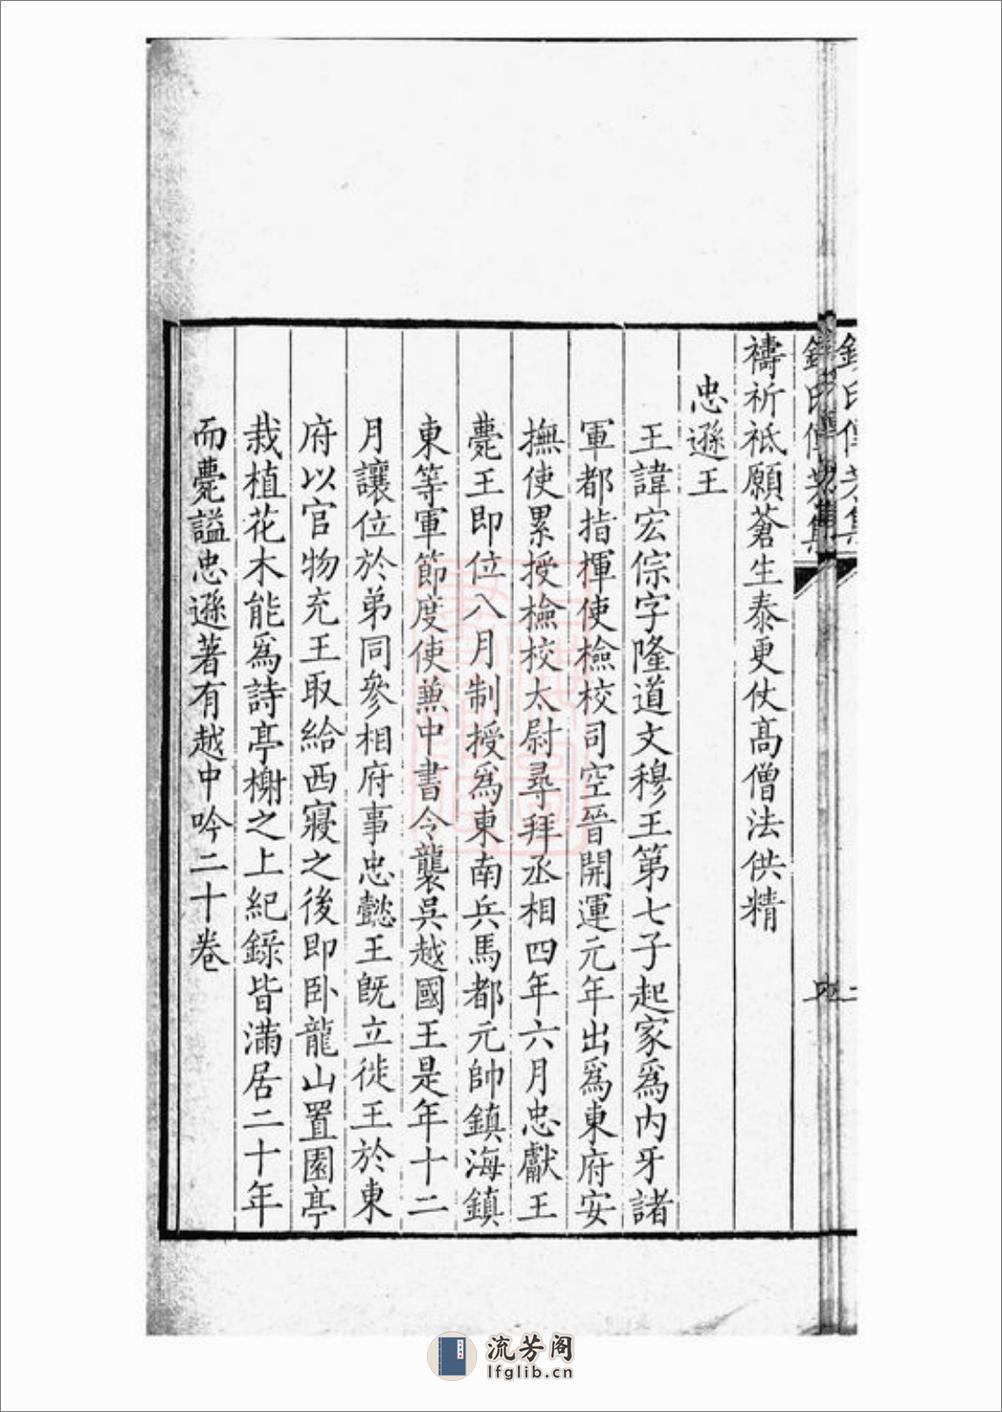 禱祈祗願蒼生泰更仗高僧法供精
忠遜王
王諱宏倧字隆道文穆王第七子起家爲內牙諸
軍都指揮使檢校司空晉開運元年出爲東府安
撫使累授檢校太尉尋拜丞相四年六月忠獻王
薨王即位八月制授爲東南兵馬都元帥鎮海鎮
東等軍節度使兼中書令襲吳越國王是年十二
月讓位於弟同參相府事忠懿王旣立徙王於東
府以官物充王取給西寢之後即卧龍山置園亭
栽植花木能爲詩亭榭之上紀錄皆滿居二十年
而薨謚忠遜著有越中吟二十卷
流芳阁
lfglib.cn